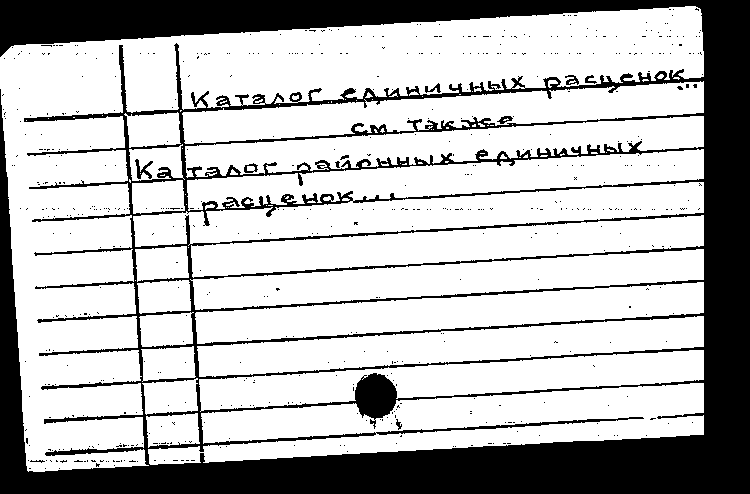 Каталог единичных расценок...
см. также
Каталог районных единичных
расценок...